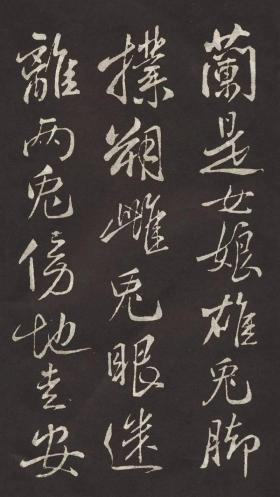 蘭是女娘雄兎腳
撲朔雌兎眼迷
離兩兎傍地走安